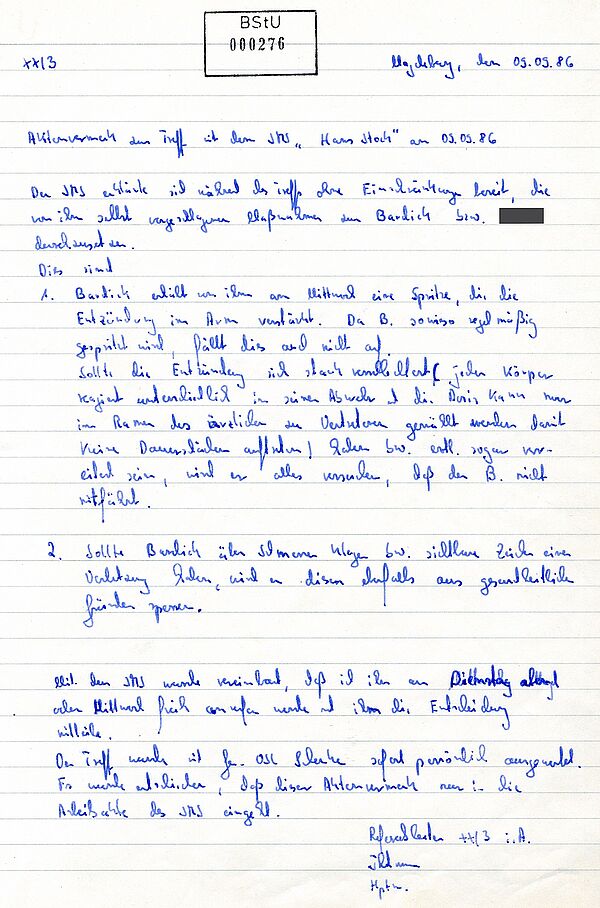 BStU
000276
XX/3 Magdeburg, den 05.09.86
Aktenvermerk zum Treff mit dem IMS „Hans Stock" am 05.09.86
Der IMS erklärte sich während des Treffs ohne Einschränkungen bereit, die
von ihm selbst vorgeschlagenen Maßnahmen zum Bardick bzw.
durchzusetzen.
Dies sind
1. Bardick erhält von ihm am Mittwoch eine Spritze, die die
Entzündung im Arm verstärkt. Da B. sowieso regelmäßig
gespritzt wird, fällt dies auch nicht auf.
Sollte die Entzündung sich stark verschlechtert (jeder Körper
reagiert unterschiedlich in seiner Abwehr u. die Dosis kann nur
im Ramen des ärztlichen zu Vertretenen gewählt werden damit
keine Dauerschäden auftreten) haben bzw. evtl. sogar ver-
eitert sein, wird er alles versuchen, daß der B. nicht
mitfährt.
2. Sollte Bardick über Schmerzen klagen bzw. sichtbare Zeichen einer
Verletzung haben, wird er diesen ebenfalls aus gesundheitlichen
Gründen sperren.
Mit dem IMS wurde vereinbart, daß ich ihn am Dienstag abend
oder Mittwoch früh anrufen werde u. ihm die Entscheidung
mitteile.
Der Treff wurde mit Gen. OSL sofort persönlich ausgewertet.
Es wurde entschieden, daß dieser Aktenvermerk nur in die
Arbeitsakte des IMS eingeht.
Referatsleiter XX/3 i.A.
Hptm.